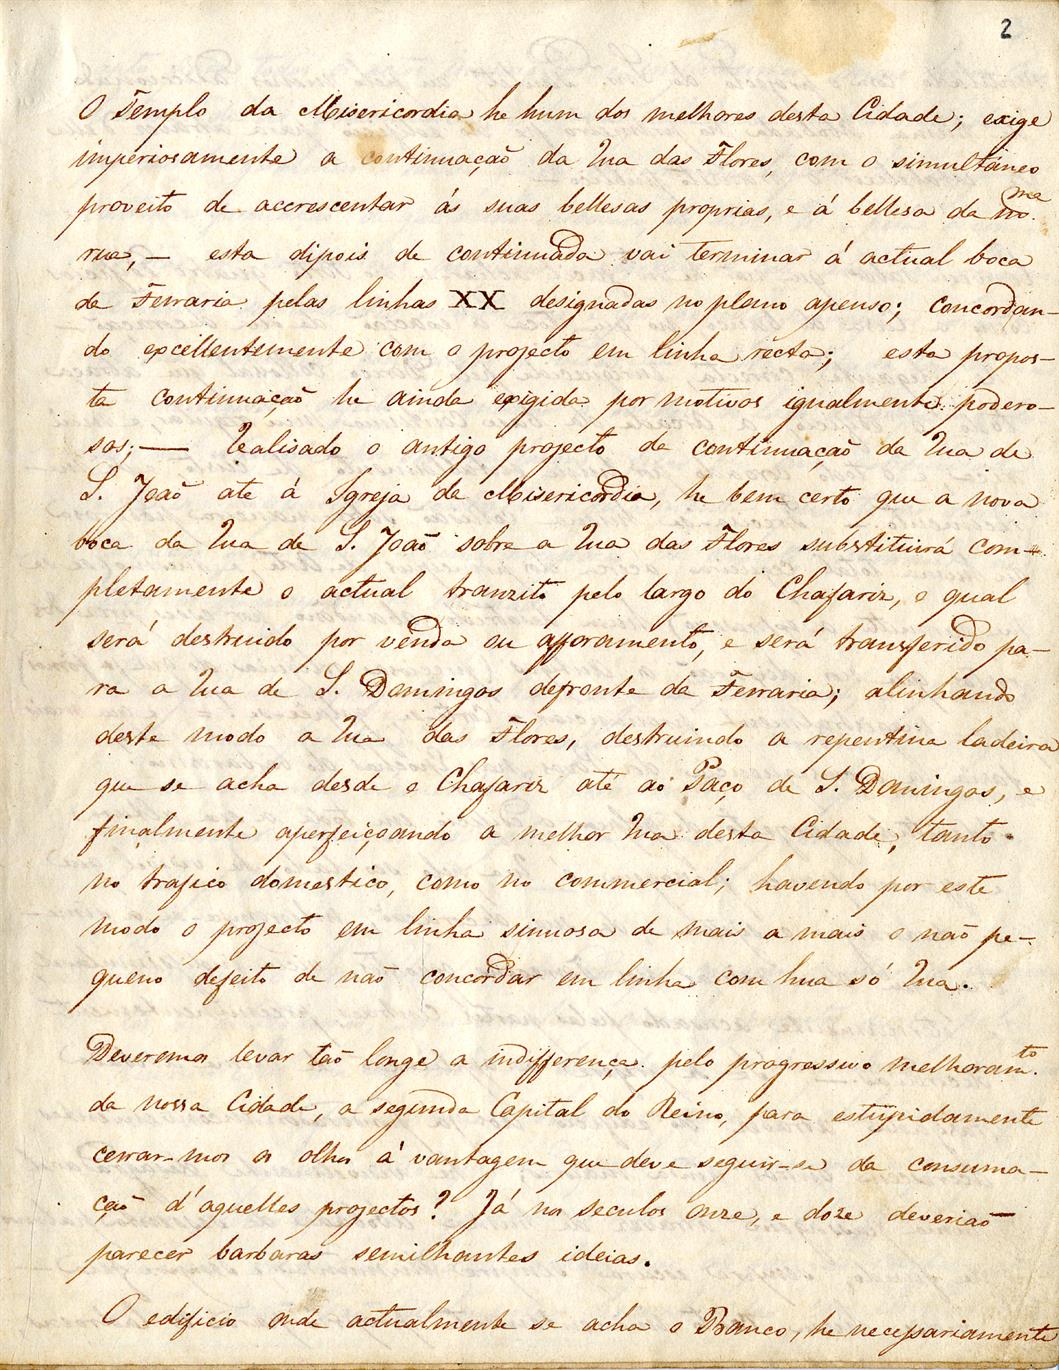 2
O Templo da Misericordia he hum dos melhores desta Cidade; exige
imperiosamente a continuação da Rua das Flores, com o simultáneo
proveito de accrescentar ás suas bellesas proprias, e á bellesa da mma
rua, — esta dipois de continuada vai terminar á actual boca
da Ferraria pelas linhas XX designadas no plano apenso; concordan-
do excellentemente com o projecto em linha recta; esta propos-
ta continuação he ainda exigida por motivos igualmente podero-
sos; — Realisado o antigo projecto da continuação da Rua de
S. João ate á Igreja da Misericordia, he bem certo que a nova
boca da Rua de S. João sobre a Rua das Flores substituirá com-
pletamente o actual tranzito pelo largo do Chafariz, o qual
será destruido por venda ou afforamento, e será transferido pa-
ra a Rua de S. Domingos defronte da Ferraria; alinhando
deste modo a Rua das Flores, destruindo a repentina ladeira
que se acha desde o Chafariz até ao Paço de S. Domingos, e
finalmente aperfeiçoando a melhor Rua desta Cidade, tanto
no trafico domestico, como no commercial; havendo por este
modo o projecto em linha sinuosa de mais a mais o não pe-
queno defeito de não concordar em linha com hua só Rua.
Deveremos levar tão longe a indifferença pelo progressivo melhoramto.
da nossa Cidade, a segunda Capital do Reino, para estupidamente
cerrar-mos os olhos á vantagem que deve seguir-se da consuma-
ção d'aquelles projectos? Já nos seculos onze, e doze deverião
parecer barbaras semilhantes ideias.
O edificio onde actualmente se acha o Banco, he necessariamente